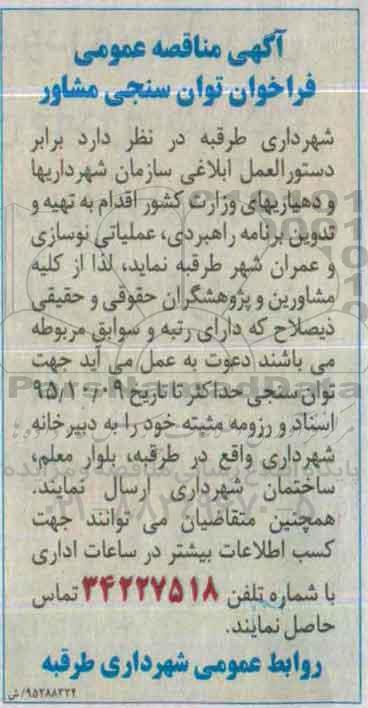 آگهی مناقصه عمومی
فراخوان توان سنجی مشاور
شهرداری طرقبه در نظر دارد برابر
دستورالعمل ابلاغی سازمان شهرداریها
و دهیاریهای وزارت کشور اقدام به تهیه و
تدوین برنامه راهبردی، عملیاتی نوسازی
و عمران شهر طرقبه نماید، لذا از کلیه
مشاورین و پژوهشگران حقوقی و حقیقی
ذیصلاح که دارای رتبه و سوابق مربوطه
می باشند دعوت به عمل می آید جهت
توان سنجی حداکثر تا تاریخ ۹۵/۱۰/۰۹
اسناد و رزومه مثبته خود را به دبیرخانه
شهرداری واقع در طرقبه، بلوار معلم،
ساختمان شهرداری ارسال نمایند.
همچنین متقاضیان می توانند جهت
کسب اطلاعات بیشتر در ساعات اداری
با شماره تلفن ۳۴۲۲۷۵۱۸ تماس
حاصل نمایند.
روابط عمومی شهرداری طرقبه
۹۵۲۸۸۳۲۴/ش
ParsNamadData